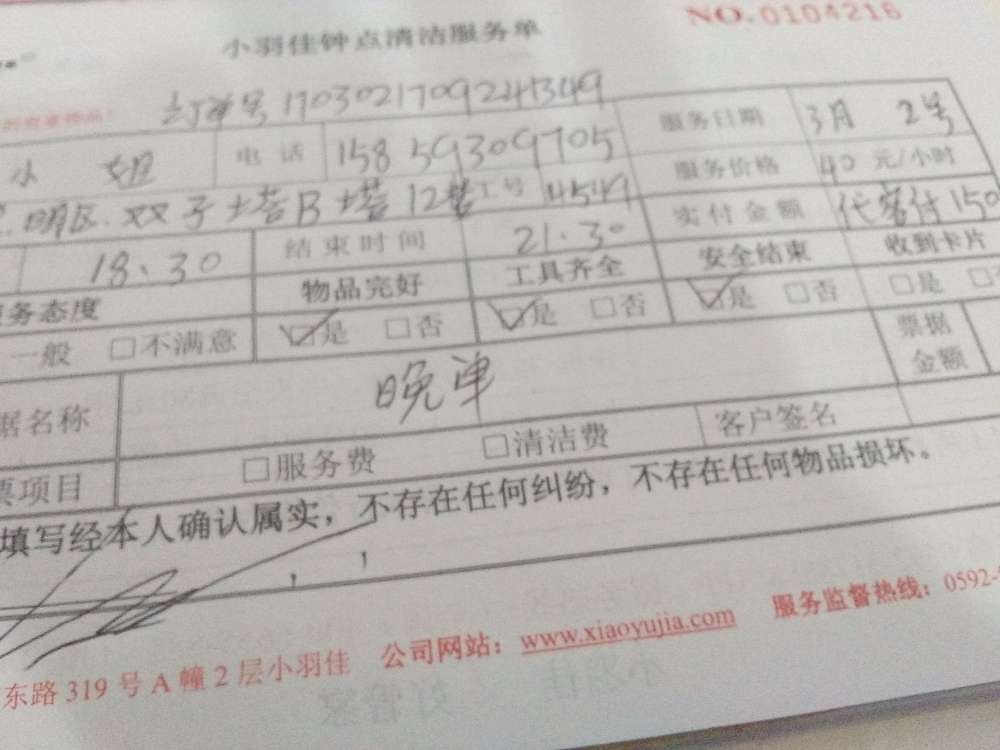 NO.0104216
小羽佳钟点清洁服务单
订单号 1703021709241349
小 姐 电话 15859309705 服务日期 3月 2号
服务价格 40 元/小时
明区.双子塔B塔12楼 工号 4549 实付金额 代客付150
18.30 结束时间 21.30
务态度 物品完好 工具齐全 安全结束 收到卡片
一般 □不满意 ☑是 □否 ☑是 □否 ☑是 □否 □是
据名称 晚单 票据金额
票项目 □服务费 □清洁费 客户签名
填写经本人确认属实，不存在任何纠纷，不存在任何物品损坏。
东路 319 号 A 幢 2 层小羽佳 公司网站：www.xiaoyujia.com 服务监督热线：0592-